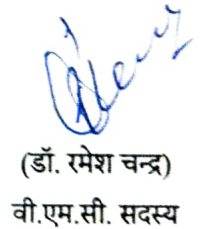 (डॉ. रमेश चन्द्र)
वी.एम.सी. सदस्य